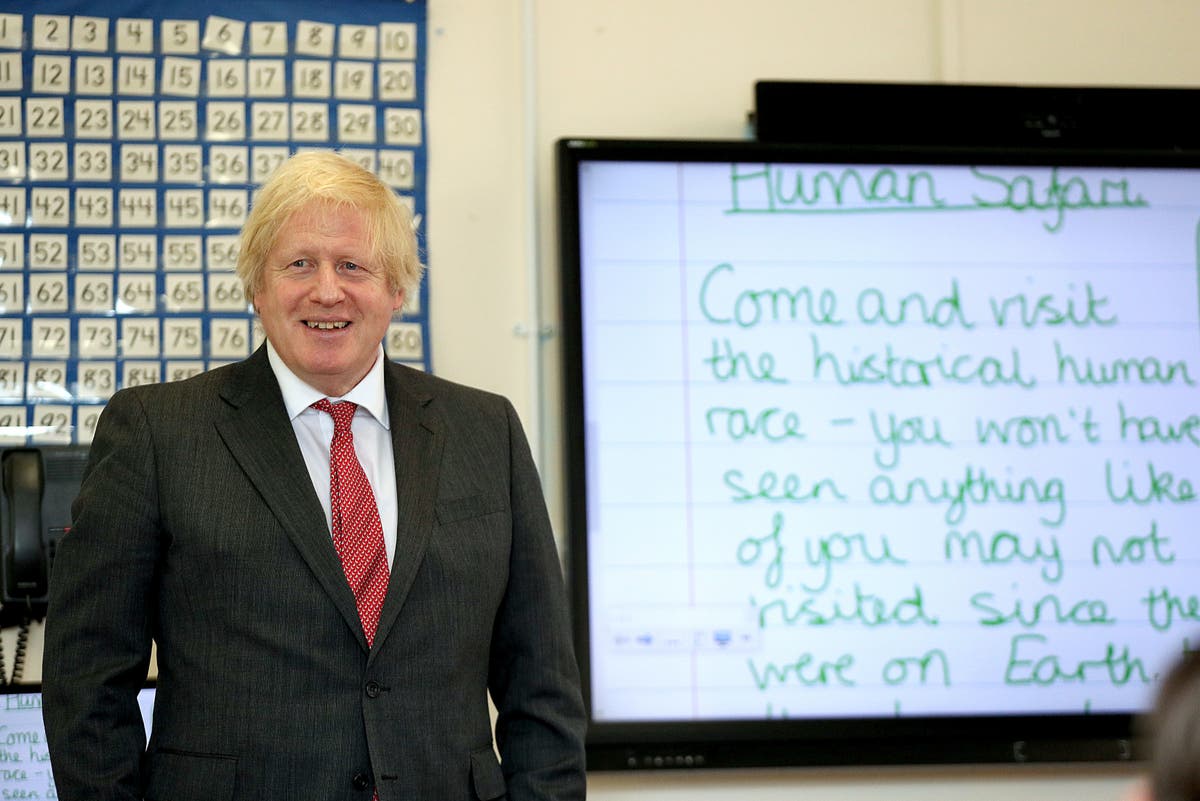 1 2 3 4 5 6 7 8 9 10
11 12 13 14 15 16 17 18 19 20
21 22 23 24 25 26 27 28 29 30
31 32 33 34 35 36 37 40
41 42 43 44 45 46
51 52 53 54 55 56
61 62 63 64 65 66
71 72 73 74 75 76 80
81 82 83 84 85
91 92 93 94
Human Safari
Come and visit
the historical human
race - you won't have
seen anything like
of you may not
visited since the
were on Earth.
Hum
Come
the his
race - y
seen a